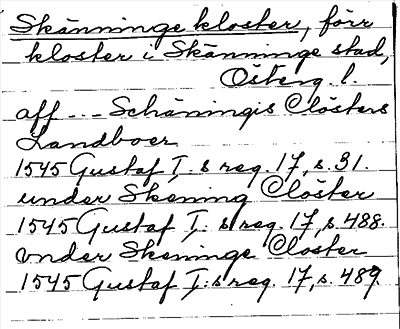 Skänninge kloster, förr
kloster i Skänninge stad,
Österg. l.
aff --- Schäningis Clösters
Landboer
1545 Gustaf I:s reg. 17, s. 31.
under Skening Clöster
1545 Gustaf I:s reg. 17, s. 488.
vnder Skeninge Closter
1545 Gustaf I:s reg. 17, s. 489.